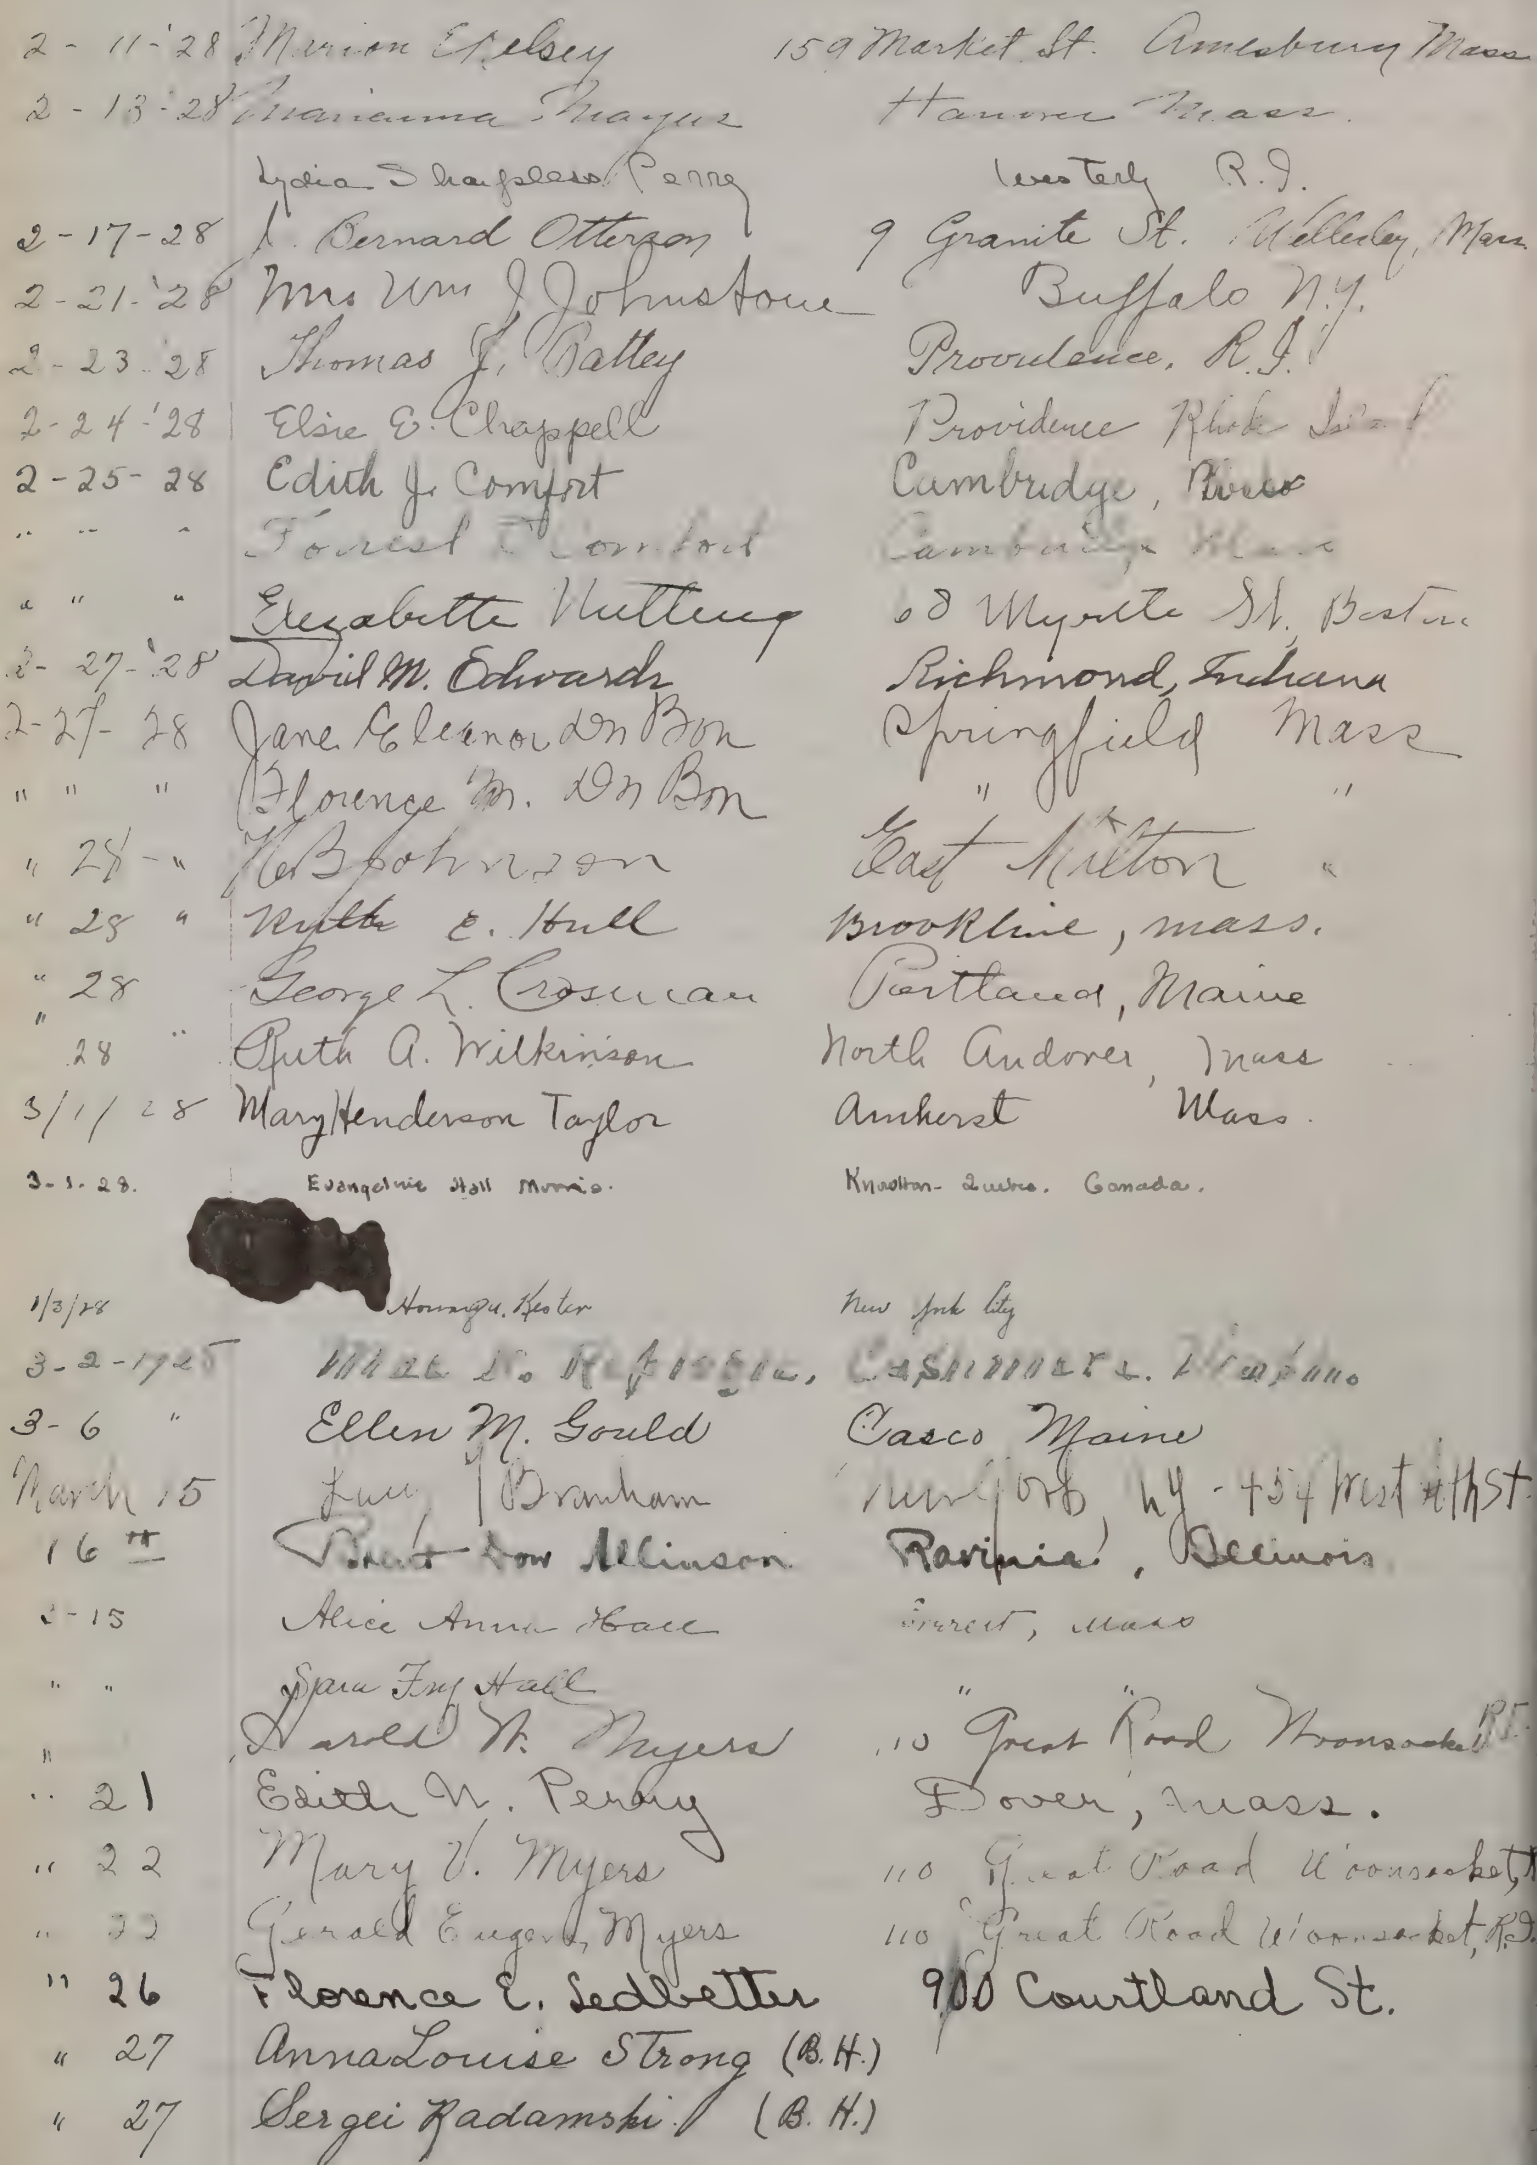 2-11-'28 Marion E Kelsey 159 Market St. Amesbury Mass
2-13-'28 Marianna Hanover Mass.
Lydia Sharpless Perry Westerly R.I.
2-17-28 J. Bernard Otterson 9 Granite St. Wellesley, Mass
2-21-'28 Mrs Wm J Johnstone Buffalo N.Y.
2-23 '28 Thomas J. Battey Providence, R.I.
2-24-'28 Elsie E. Chappell Providence Rhode Island
2-25-28 Edith J. Comfort Cambridge, Mass
" " " Forrest Comfort Cambridge Mass
" " " Elizabeth Nutting 68 Myrtle St., Boston
2-27-'28 David M. Edwards Richmond, Indiana
2-27-28 Jane Eleanor Du Bon Springfield Mass
" " " Florence M. Du Bon " "
" 28 - " Johnson East Milton "
" 28 " Ruth E. Hull Brookline, Mass.
" 28 George L. Crosman Portland, Maine
" 28 " Ruth A. Wilkinson North Andover, Mass
3/1/28 Mary Henderson Taylor Amherst Mass.
3-1-28. Evangeline Hall Morris. Knowlton- Quebec. Canada.
1/3/28 Kester New York City
3-2-1928
3-6 " Ellen M. Gould Casco Maine
March 15 Lucy Branham New York, NY - 454 West
16th Brent Dow Allinson Ravinia, Illinois
3-15 Alice Anna Hall Everett, Mass
" " Sara Fry Hall " "
" Harold W. Myers 110 Great Road Woonsocket R.I.
" 21 Edith N. Perry Dover, Mass.
" 22 Mary V. Myers 110 Great Road Woonsocket,
" 22 Gerald Eugene Myers 110 Great Road Woonsocket, R.I.
" 26 Florence E. Ledbetter 900 Courtland St.
" 27 Anna Louise Strong (B.H.)
" 27 Sergei Radamski (B.H.)